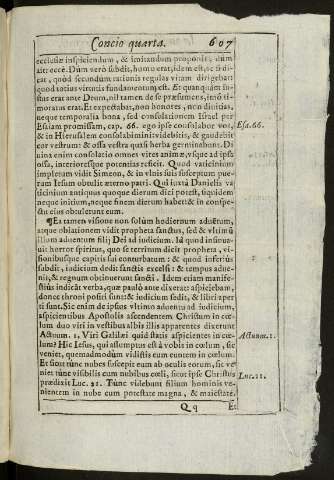 Concio quarta. 607
ecclesiæ inspiciendum, & imitandum proponit, dum
ait: ecce. Dùm verò subdit, homo erat, idem est, ac si di-
cat, quòd secundum rationis regulas vitam dirigebat:
quod totius virtutis fundamentum est. Et quanquàm iu-
stus erat ante Deum, nil tamen de se præsumens, imò ti-
moratus erat. Et expectabat, non honores, non diuitias,
neque temporalia bona, sed consolationem Israel per
Esaiam promissam, cap. 66. ego ipse consolabor vos,
Esa. 66.
& in Hierusalem consolabimini: videbitis, & gaudebit
cor vestrum: & ossa vestra quasi herba germinabunt. Di
uina enim consolatio omnes vites animæ, vsque ad ipsa
ossa, interioresque potentias reficit. Quod vaticinium
impletum vidit Simeon, & in vlnis suis susceptum pue-
rum Iesum obtulit æterno patri. Qui iuxta Danielis va
ticinium antiquus quoque dierum dici potest, siquidem
neque initium, neque finem dierum habet: & in conspe-
ctu eius obtulerunt eum.
¶ Et tamen visione non solùm hodiernum aduētum,
atque oblationem vidit propheta sanctus, sed & vltimū
illum aduentum filij Dei ad iudicium. Id quod insinua-
uit horror spiritus, quo se territum dicit propheta, vi-
sionibusque capitis sui conturbatum: & quod inferiùs
subdit, iudicium dedit sanctis excelsi: & tempus adue-
nit, & regnum obtinuerunt sancti. Idem etiam manife-
stiùs indicāt verba, quæ paulò ante dixerat: aspiciebam,
donec throni positi sunt: & iudicium sedit, & libri aper
ti sunt. Sic enim de ipsius vltimo aduentu ad iudicium,
aspicientibus Apostolis ascendentem Christum in cœ-
lum duo viri in vestibus albis illis apparentes dixerunt
Actuum. 1. Viri Galilæi quid statis aspicientes in cœ-
Actuum. 1.
lum? Hic Iesus, qui assumptus est à vobis in cœlum, sic
veniet, quemadmodùm vidistis eum euntem in cœlum.
Et sicut tunc nubes suscepit eum ab oculis eorum, sic ve
niet tùnc visibilis cum nubibus cœli, sicut ipse Christus
prædixit Luc. 21. Tùnc videbunt filium hominis ve-
Luc. 21.
nientem in nube cum potestate magna, & maiestate.
Qq Et